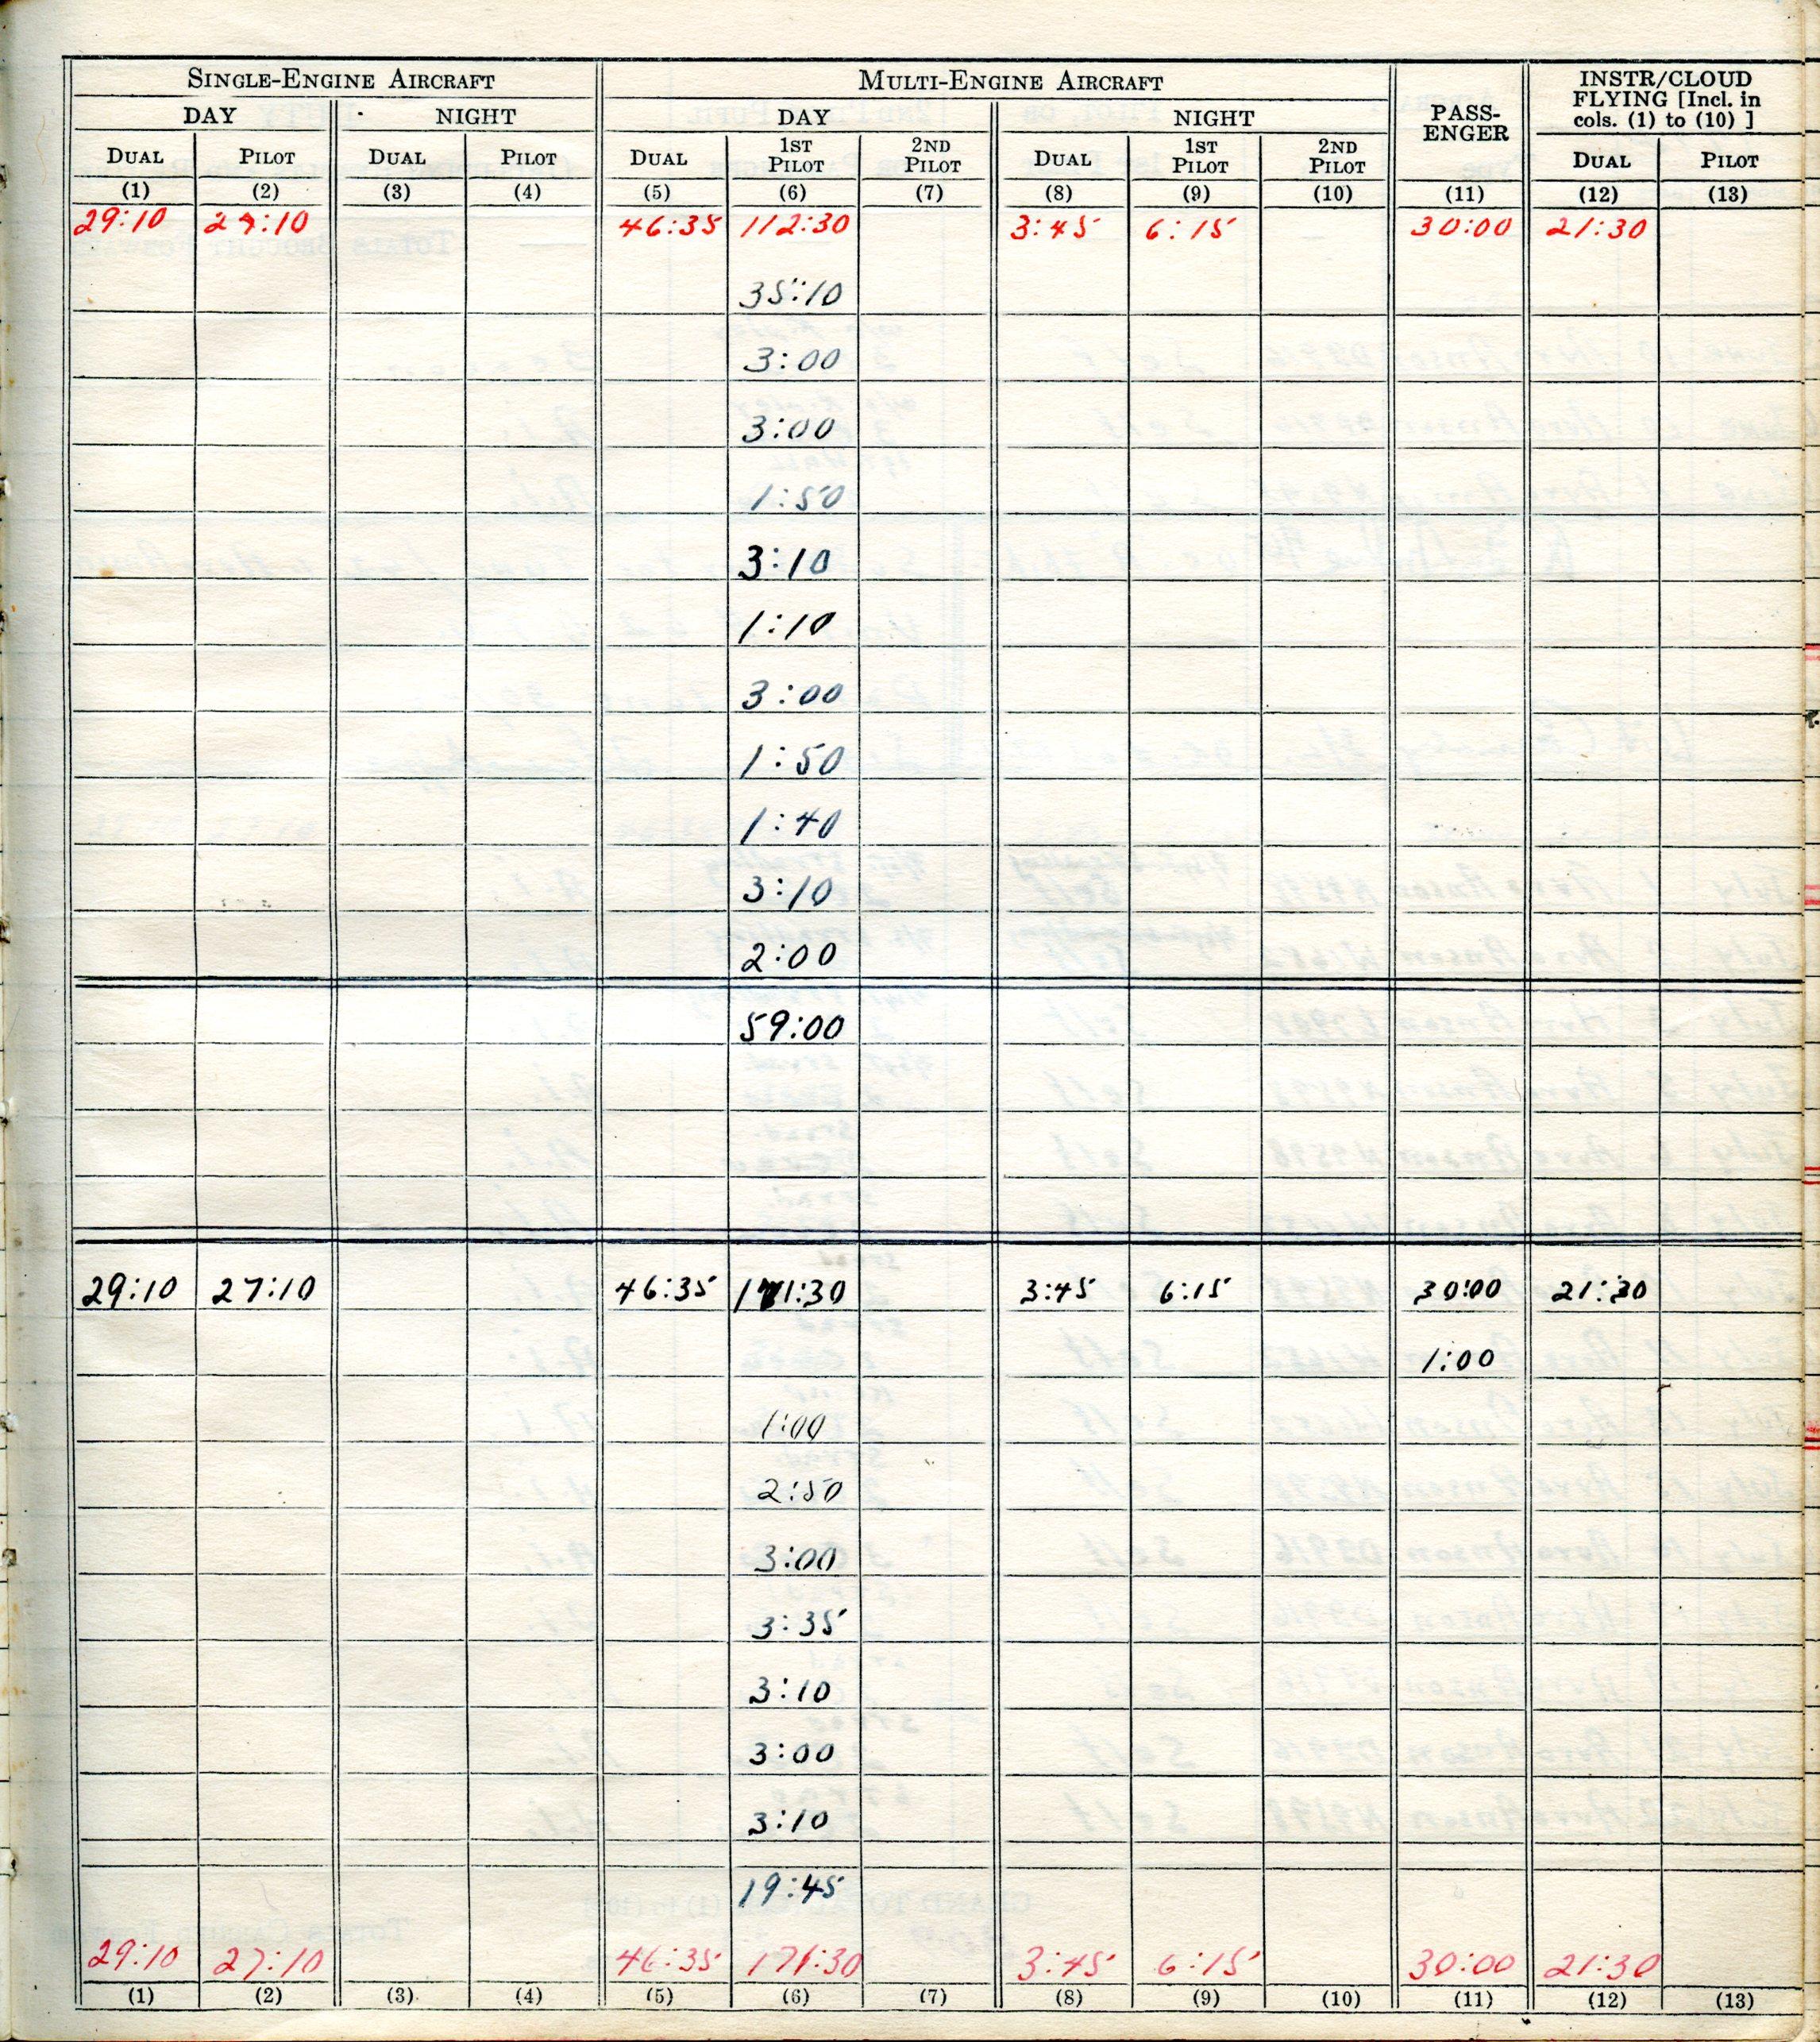 SINGLE-ENGINE AIRCRAFT MULTI-ENGINE AIRCRAFT PASS-ENGER INSTR/CLOUD FLYING [Incl. in cols. (1) to (10) ]
DAY NIGHT DAY NIGHT
DUAL PILOT DUAL PILOT DUAL 1ST PILOT 2ND PILOT DUAL 1ST PILOT 2ND PILOT DUAL PILOT
(1) (2) (3) (4) (5) (6) (7) (8) (9) (10) (11) (12) (13)
29:10 27:10 46:35 112:30 3:45 6:15 30:00 21:30
35:10
3:00
3:00
1:50
3:10
1:10
3:00
1:50
1:40
3:10
2:00
59:00
29:10 27:10 46:35 171:30 3:45 6:15 30:00 21:30
1:00
1:00
2:50
3:00
3:35
3:10
3:00
3:10
19:45
29:10 27:10 46:35 171:30 3:45 6:15 30:00 21:30
(1) (2) (3) (4) (5) (6) (7) (8) (9) (10) (11) (12) (13)